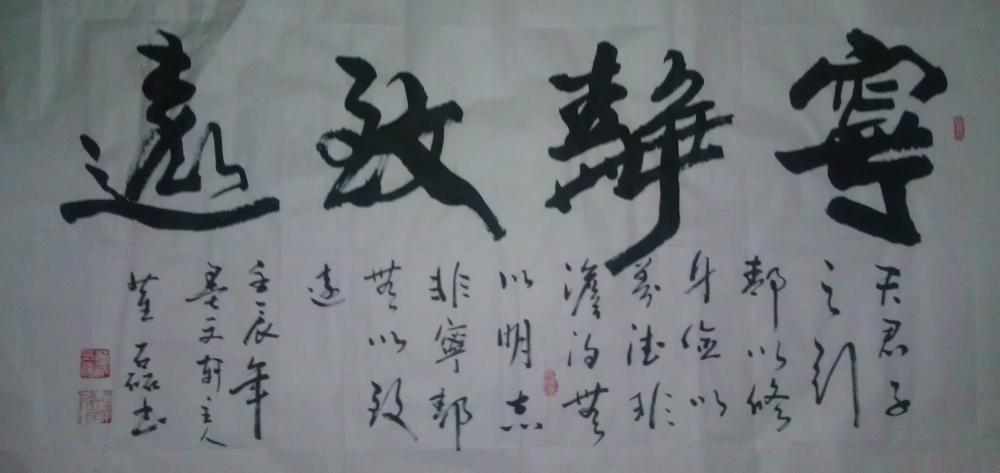 寧靜致遠
夫君子
之行
靜以修
身儉以
養德非
澹泊無
以明志
非寧靜
無以致
遠
壬辰年
墨文軒主人
董磊书